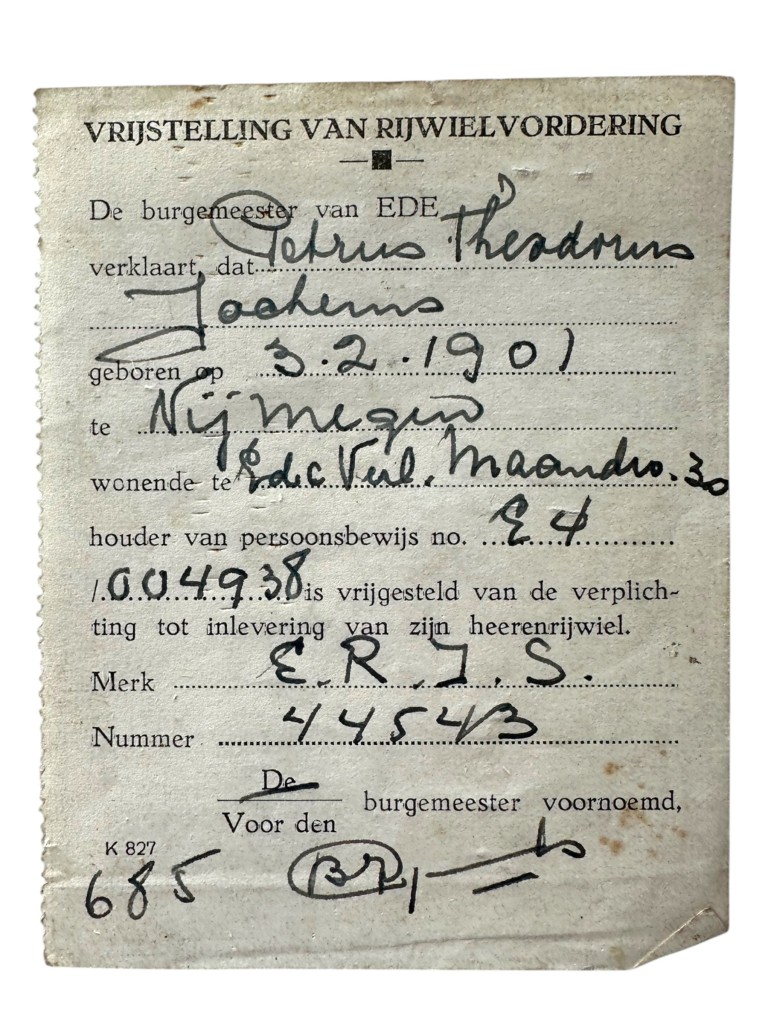 VRIJSTELLING VAN RIJWIELVORDERING
De burgemeester van EDE
verklaart, dat Petrus Theodorus
Jochems
geboren op 3.2.1901
te Nijmegen
wonende te Ede Verl. Maandro. 30
houder van persoonsbewijs no. E 4
/004938 is vrijgesteld van de verplich-
ting tot inlevering van zijn heerenrijwiel.
Merk E.R.J.S.
Nummer 44543
De
Voor den burgemeester voornoemd,
K 827
685